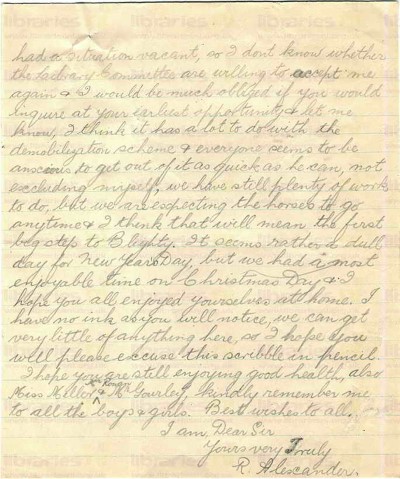 had a situation vacant, so I dont know whether
the Library Committee are willing to accept me
again & I would be much obliged if you would
inquire at your earliest opportunity & let me
know, I think it has a lot to do with the
demobilization scheme & everyone seems to be
anxcious to get out of it as quick as he can, not
excluding myself, we have still plenty of work
to do, but we are expecting the horses to go
anytime & I think that will mean the first
big step to Blighty. It seems rather a dull
day for New Years Day, but we had a most
enjoyable time on Christmas Day & I
hope you all enjoyed yourselves at home. I
have no ink as you will notice, we can get
very little of anything here, so I hope you
will please excuse this scribble in pencil.
I hope you are still enjoying good health, also
Miss Miller & Mr Gourley, kindly remember me
to all the boys & girls. Best wishes to all.
I am, Dear Sir
Yours very Truly
R. Alexander.
libraries